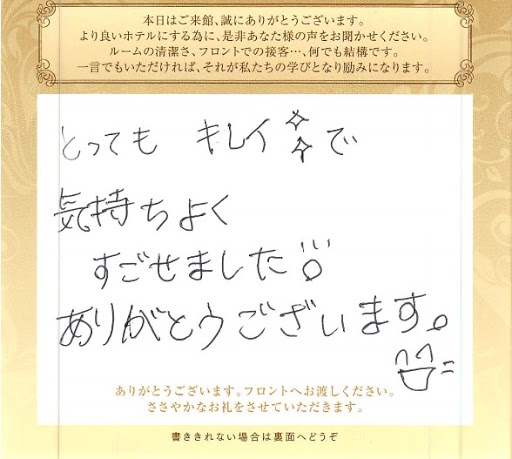 本日はご来館、誠にありがとうございます。
より良いホテルにする為に、是非あなた様の声をお聞かせください。
ルームの清潔さ、フロントでの接客…、何でも結構です。
一言でもいただければ、それが私たちの学びとなり励みになります。
とっても キレイ で
気持ちよく
すごせました
ありがとうございます。
ありがとうございます。フロントへお渡しください。
ささやかなお礼をさせていただきます。
書ききれない場合は裏面へどうぞ